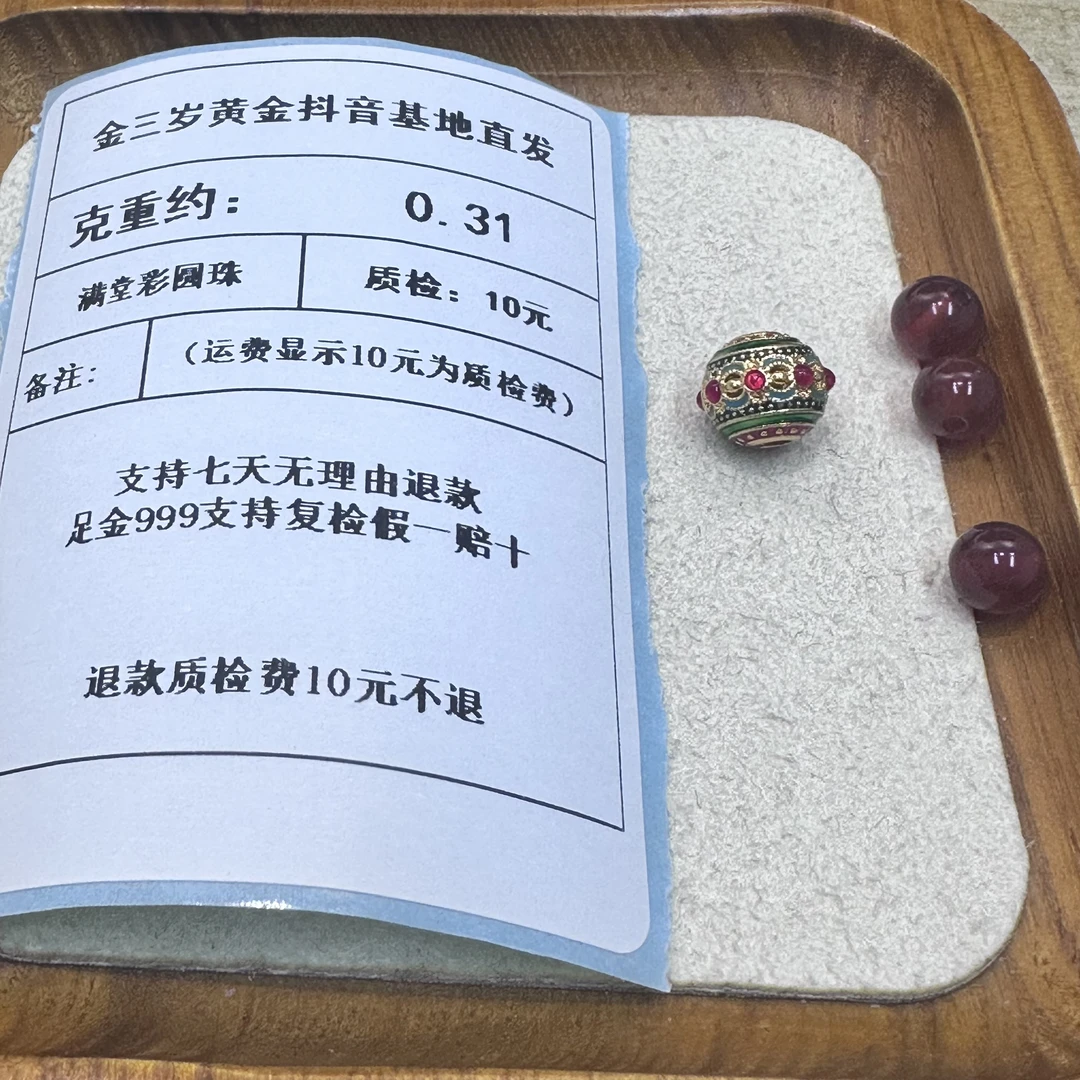 金三岁黄金抖音基地直发
克重约： 0.31
满堂彩圆珠 质检：10元
备注： （运费显示10元为质检费）
支持七天无理由退款
足金999支持复检假一赔十
退款质检费10元不退